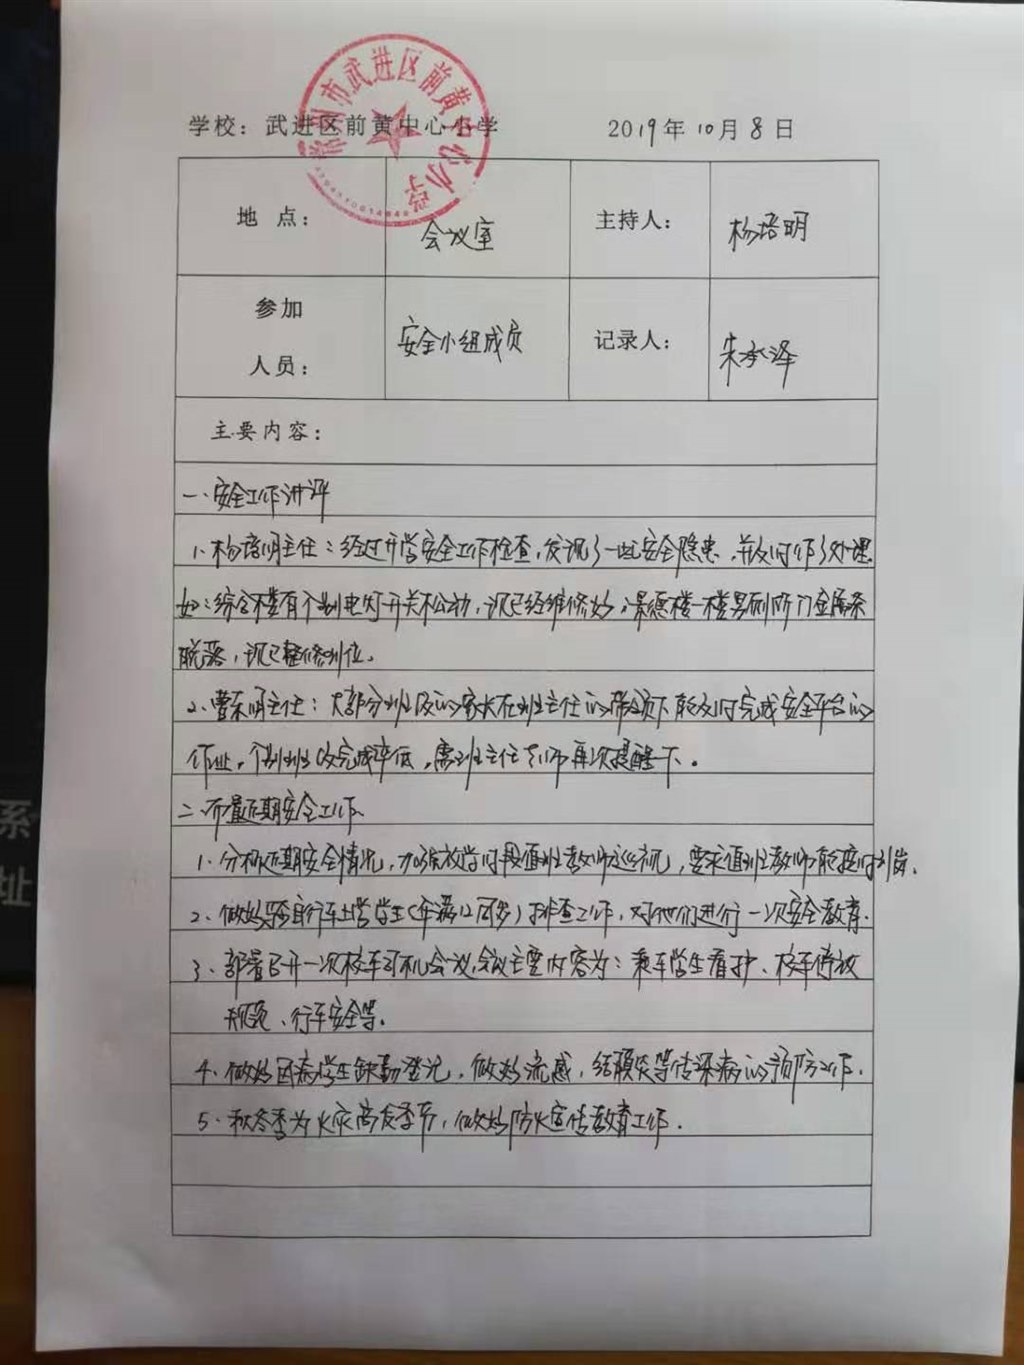 常州市武进区前黄中心小学
学校：武进区前黄中心小学 2019年10月8日
地 点： 会议室 主持人： 杨培明
参加
人员： 安全小组成员 记录人： 朱承泽
主要内容：
一、安全工作讲评
1、杨培明主任：经过开学安全工作检查，发现了一些安全隐患，并及时作了处理
如：综合楼有个别电灯开关松动，现已经维修好；景德楼一楼男厕所门金属条
脱落，现已整修到位。
2、曹东明主任：大部分班级的家长在班主任的带领下能及时完成安全平台的
作业，个别班级完成率低，需班主任老师再次提醒一下。
二、布置近期安全工作
1、分析近期安全情况，加强放学时段值班教师巡视，要求值班教师能按时到岗.
2、做好骑自行车上学学生（年满12周岁）排查工作，对他们进行一次安全教育.
3、部署召开一次校车司机会议，会议主要内容为：乘车学生看护、校车停放
规范、行车安全等.
4、做好因病学生缺勤登记，做好流感，结膜炎等传染病的预防工作.
5、秋冬季为火灾高发季节，做好防火宣传教育工作.
系
址